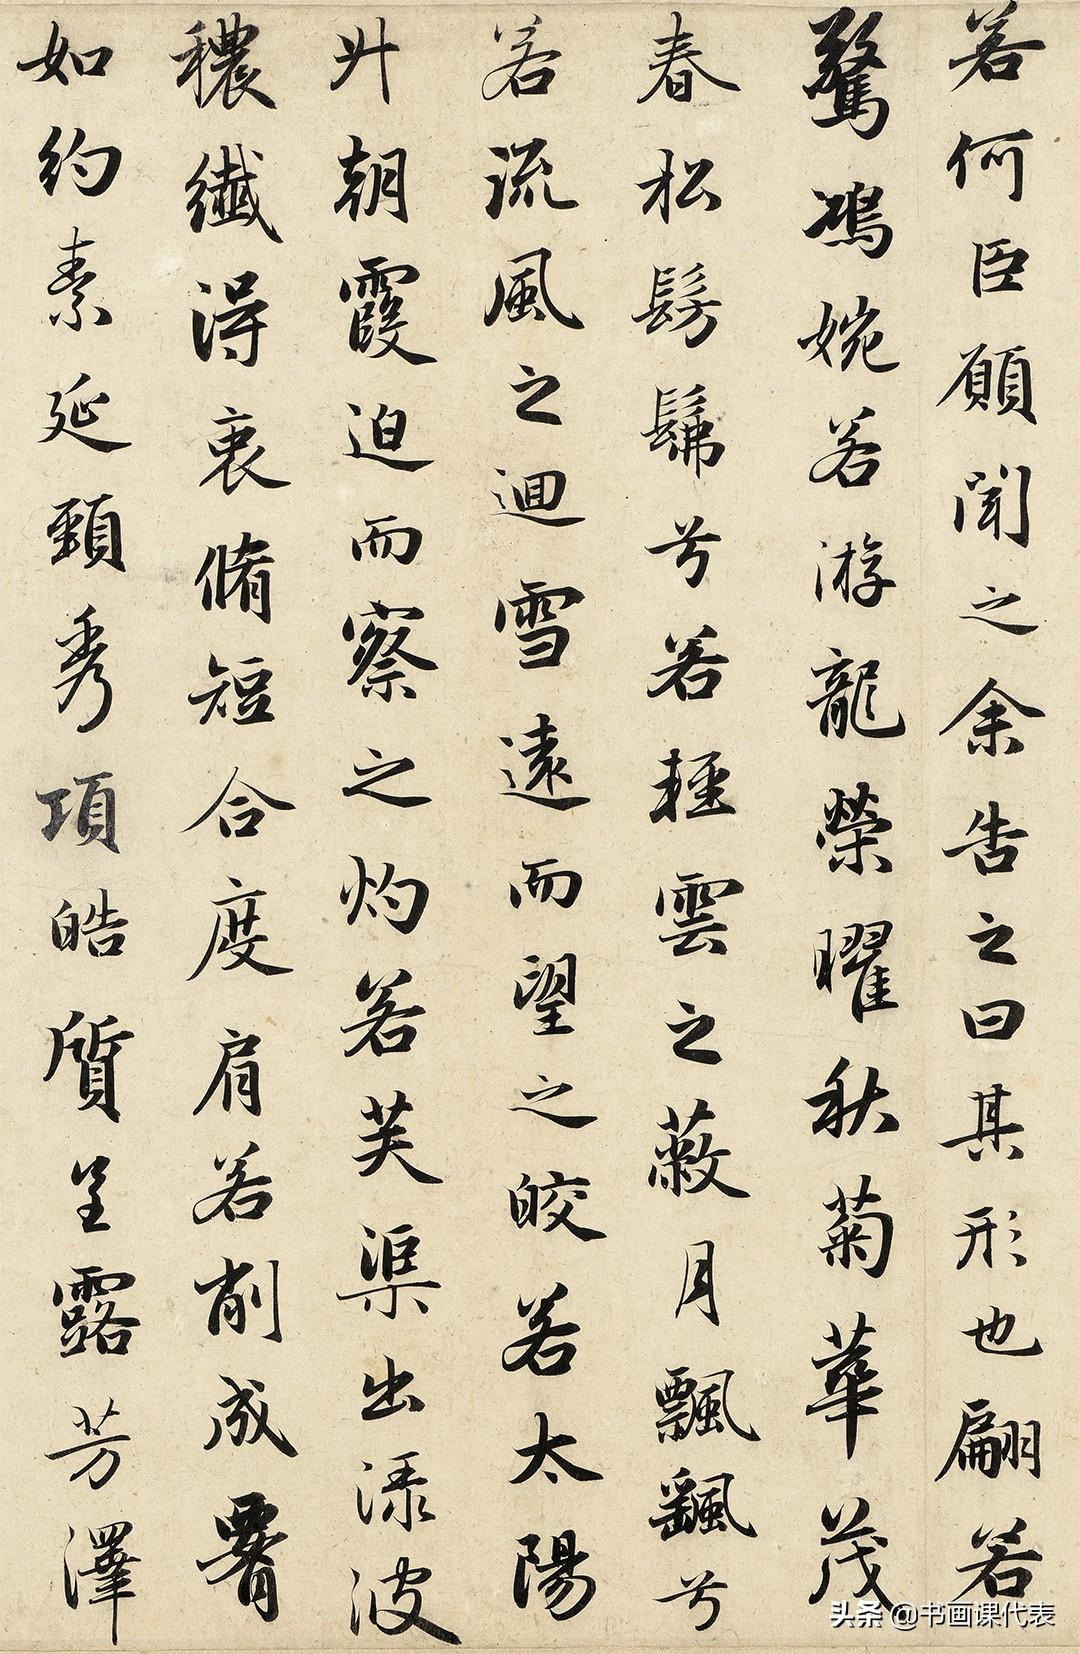 若何臣願聞之余告之曰其形也翩若
驚鴻婉若游龍榮曜秋菊華茂
春松髣髴兮若輕雲之蔽月飄颻兮
若流風之迴雪遠而望之皎若太陽
升朝霞迫而察之灼若芙渠出淥波
穠纖得衷脩短合度肩若削成署
如約素延頸秀項皓質呈露芳澤
头条 @书画课代表